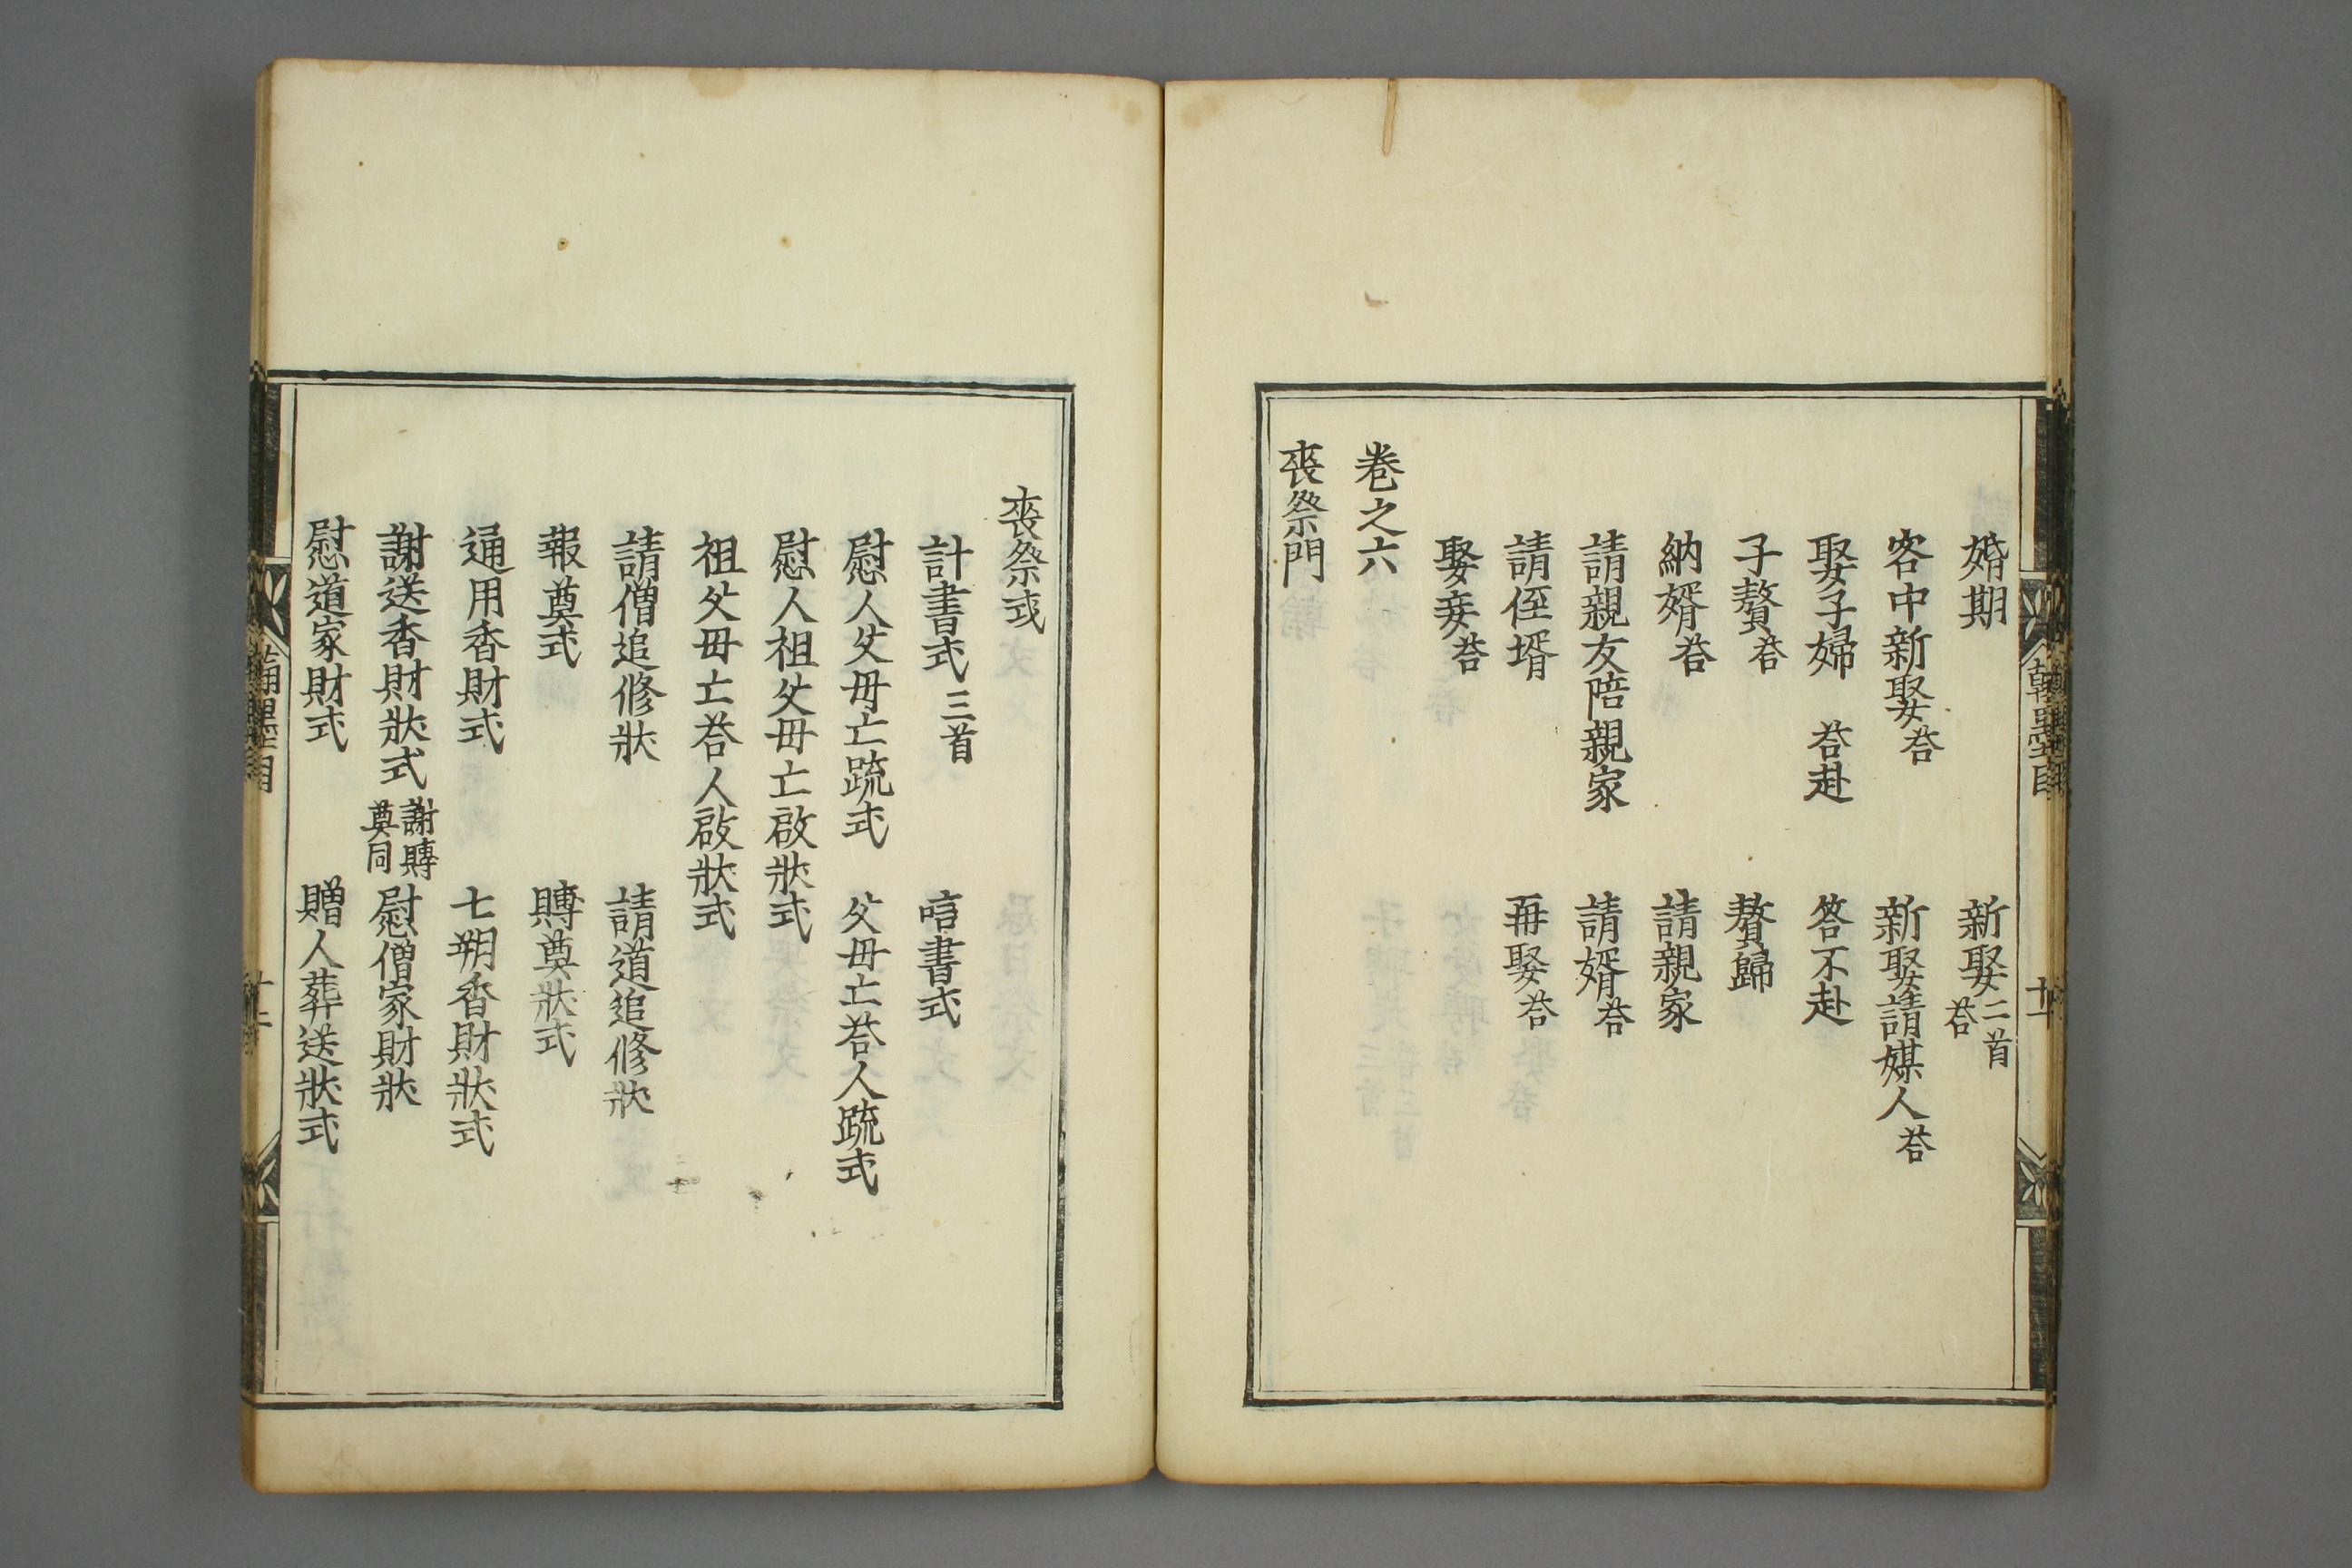 婚期　新娶二首荅
客中新娶荅　新娶請媒人荅
娶子婦　荅赴　答不赴
子贅荅　贅歸
納婿荅　請親家
請親友陪親家　請婿荅
請侄壻　再娶荅
娶妾荅
卷之六
喪祭門
喪祭式
訃書式三首　唁書式
慰人父母亡䟽式　父母亡荅人䟽式
慰人祖父母亡啟狀式
祖父母亡荅人啟狀式
請僧追修狀　請道追修狀
報奠式　賻奠狀式
通用香財式　七朔香財狀式
謝送香財狀式謝賻奠同　慰僧家財狀
慰道家財式　贈人葬送狀式